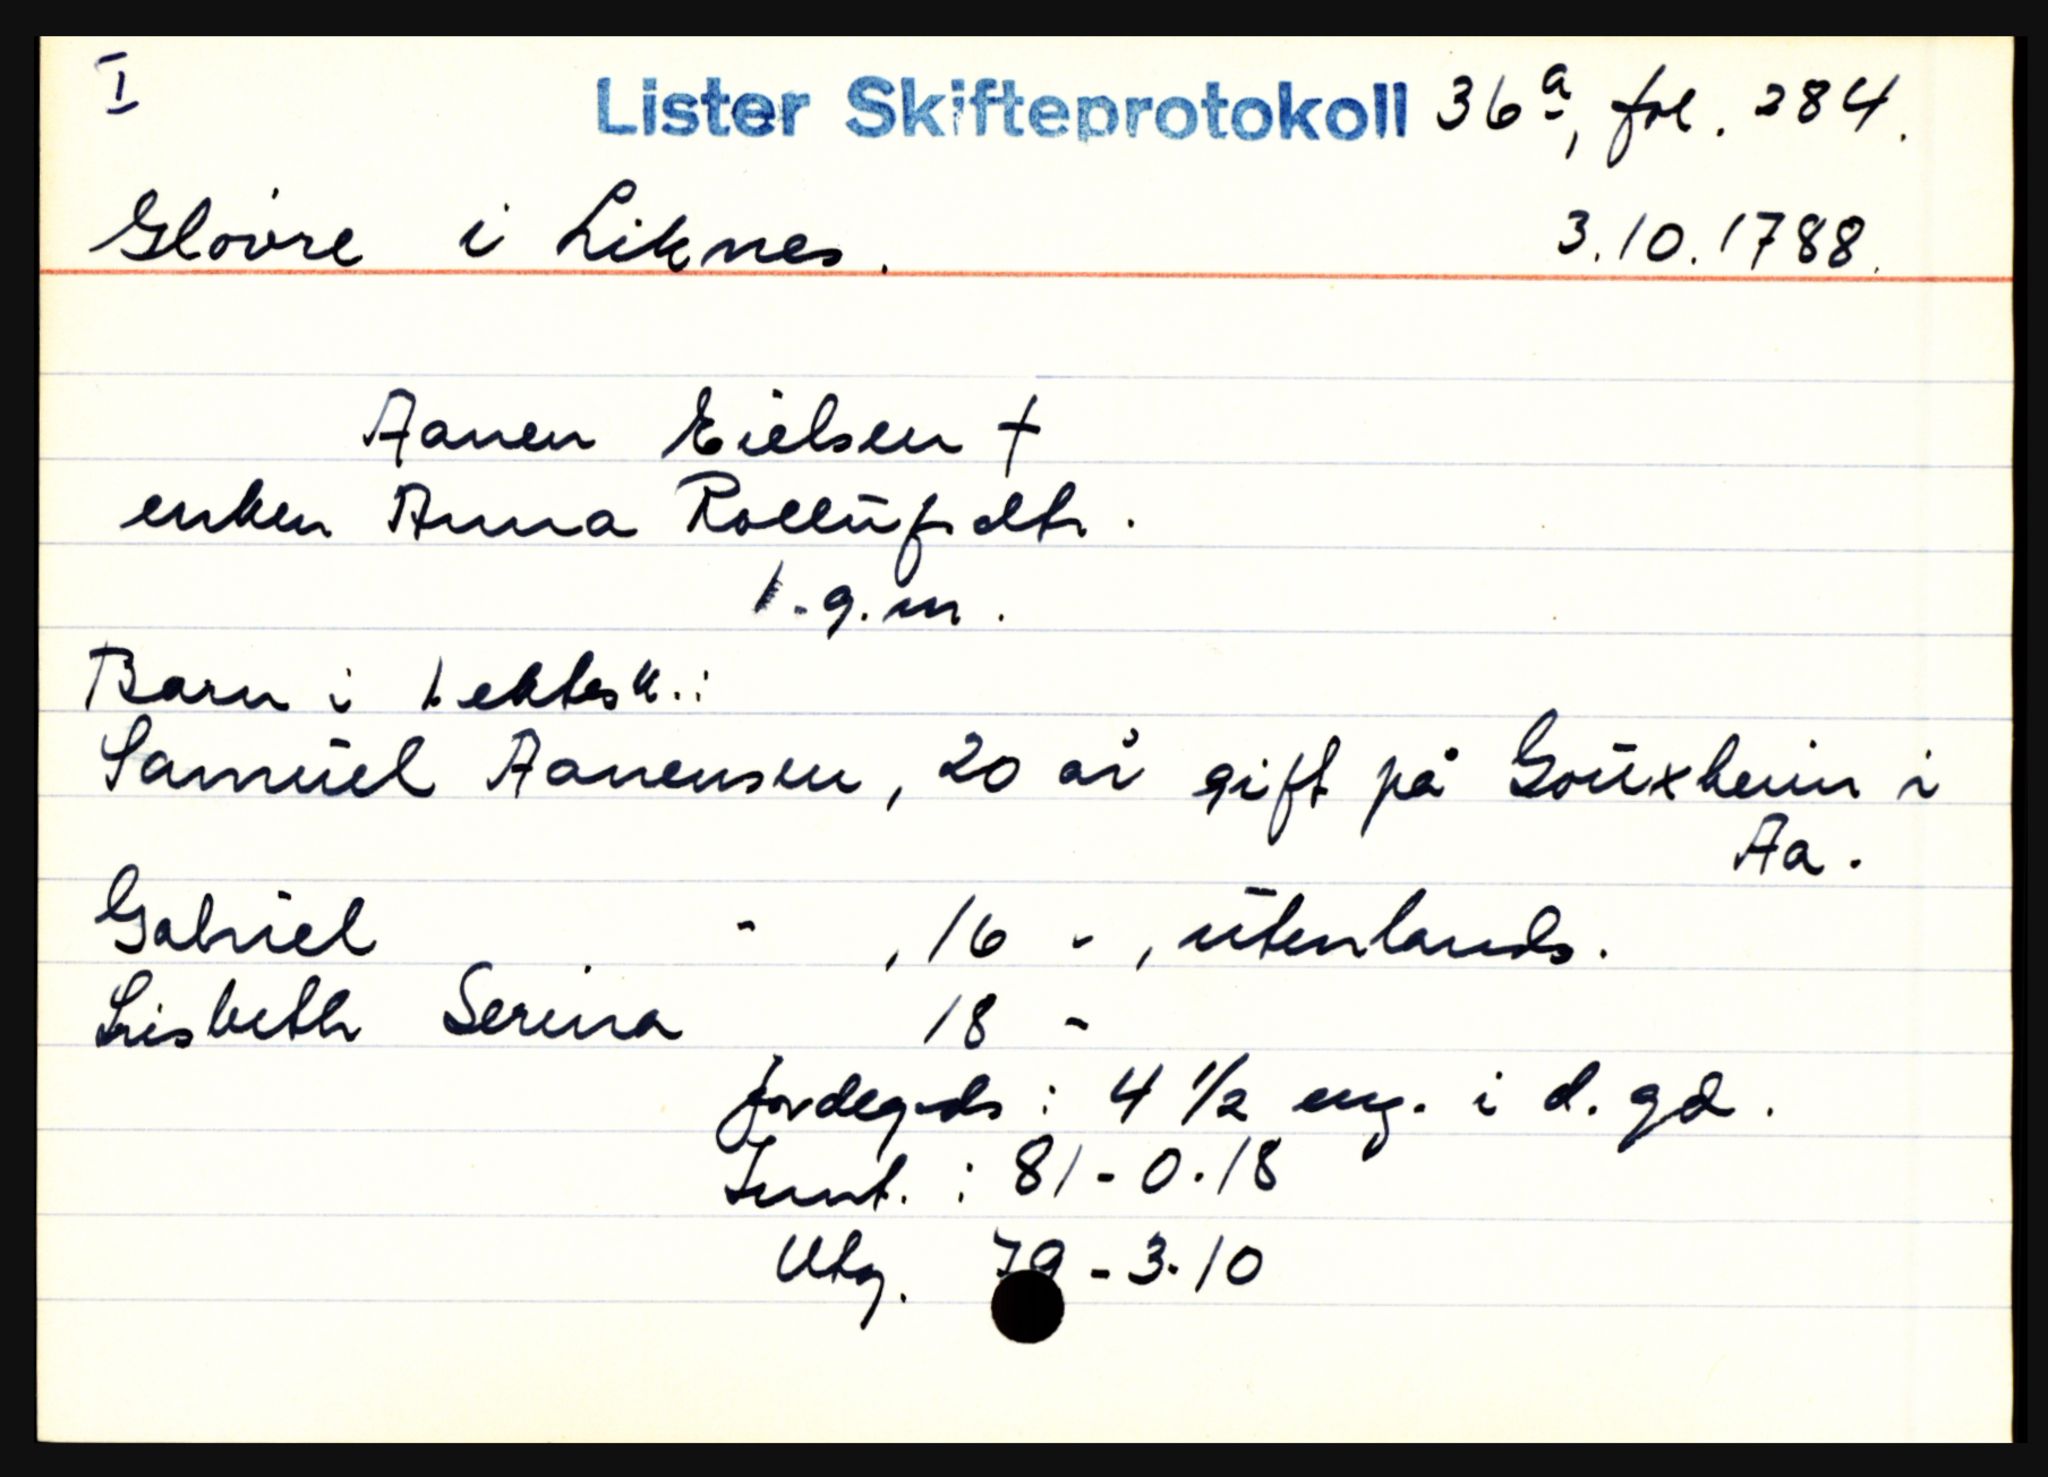 I
Lister Skifteprotokoll 36a, fol. 284.
Glovre i Liknes. 3.10.1788.
Aanen Eielsen †
enken Anna Rollufsdtr.
1.g.m.
Barn i 1 ektesk.:
Samuel Aanensen, 20 år gift på Gouxheim i
Aa.
Gabriel - , 16 - , utenlands.
Lisbeth Serina 18 -
Jordegods : 4 1/2 eng. i d. gd.
Innt. : 81-0-18
Utg. 79-3-10